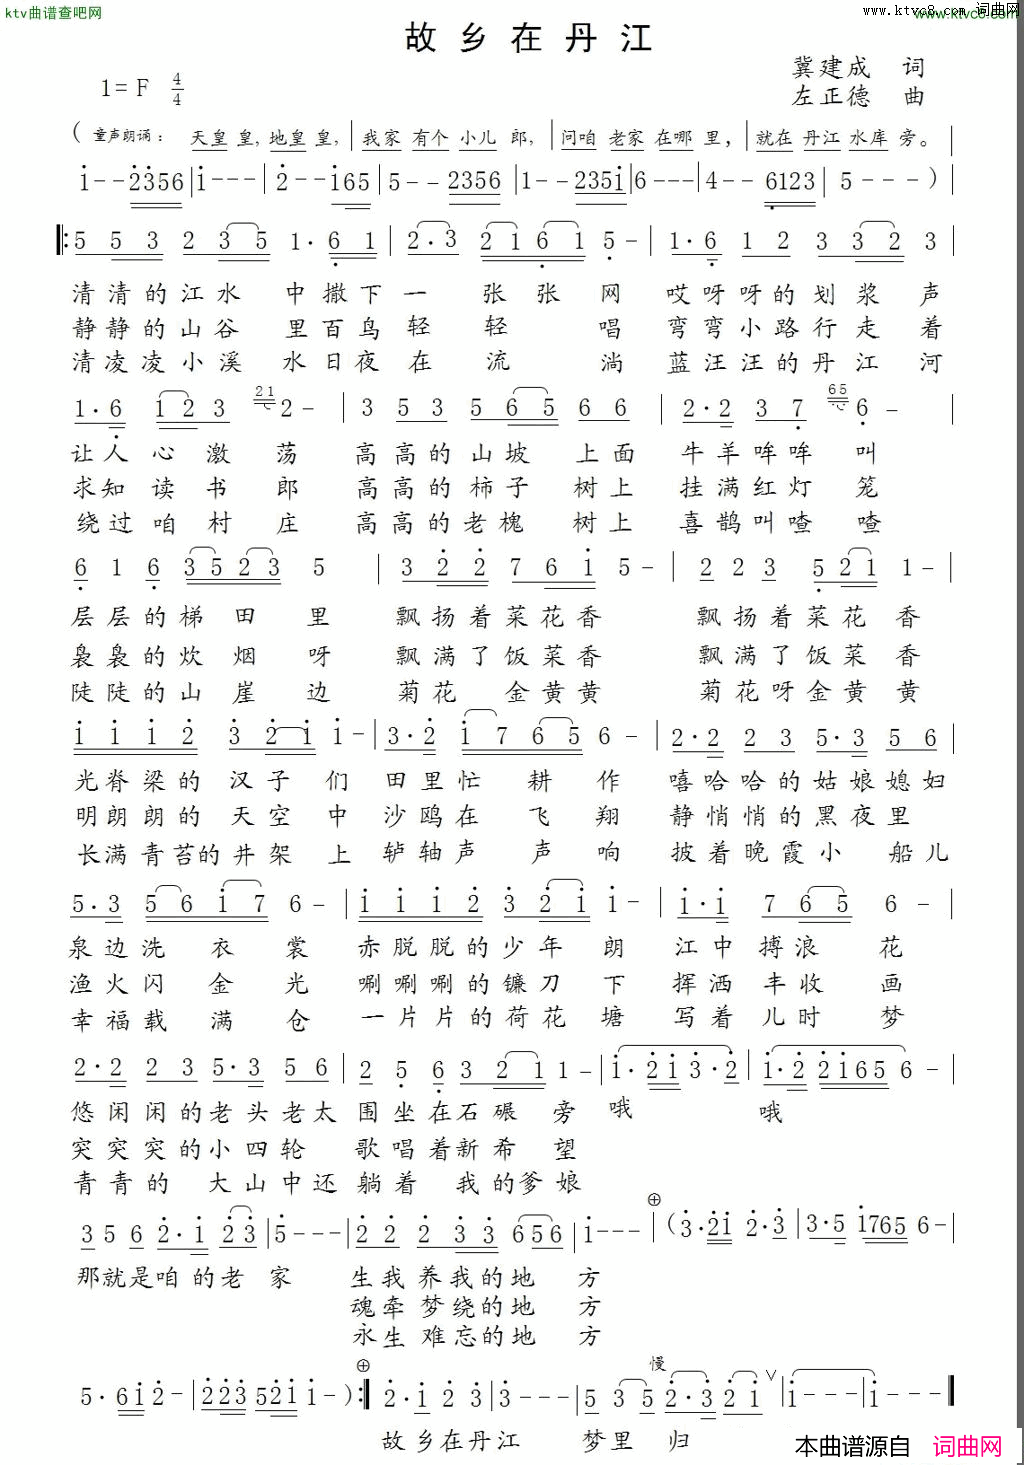 ktv曲谱查吧网
www.ktvc8.com 词曲网
故乡在丹江
冀建成 词
左正德 曲
1=F 4/4
(童声朗诵：天皇皇,地皇皇,|我家有个小儿郎,|问咱老家在哪里，|就在丹江水库旁。|
i--2356|i---|2--i65|5--2356|1--235i|6---|4--6123|5---)|
‖:5 5 3 2 3 5 1·6 1|2·3 2 1 6 1 5-|1·6 1 2 3 3 2 3|
清清的江水 中撒下一 张张网 哎呀呀的划浆声
静静的山谷 里百鸟轻 轻唱 弯弯小路行走着
清凌凌小溪 水日夜在 流淌 蓝汪汪的丹江河
1·6 1 2 3 21 2-|3 5 3 5 6 5 6 6|2·2 3 7 65 6-|
让人心激荡 高高的山坡上面 牛羊哞哞叫
求知读书郎 高高的柿子树上 挂满红灯笼
绕过咱村庄 高高的老槐树上 喜鹊叫喳喳
6 1 6 3 5 2 3 5|3 2 2 7 6 i 5-|2 2 3 5 2 1 1-|
层层的梯田里 飘扬着菜花香 飘扬着菜花香
袅袅的炊烟呀 飘满了饭菜香 飘满了饭菜香
陡陡的山崖边 菊花金黄黄 菊花呀金黄黄
i i i 2 3 2 i i-|3·2 i 7 6 5 6-|2·2 2 3 5·3 5 6|
光脊梁的汉子们 田里忙耕作 嘻哈哈的姑娘媳妇
明朗朗的天空中 沙鸥在飞翔 静悄悄的黑夜里
长满青苔的井架上 轳轴声声响 披着晚霞小船儿
5·3 5 6 i 7 6-|i i i 2 3 2 i i-|i·i 7 6 5 6-|
泉边洗衣裳 赤脱脱的少年朗 江中搏浪花
渔火闪金光 唰唰唰的镰刀下 挥洒丰收画
幸福载满仓 一片片的荷花塘 写着儿时梦
2·2 2 3 5·3 5 6|2 5 6 3 2 1 1-|i·2 i 3·2|i·2 2 i 6 5 6-|
悠闲闲的老头老太 围坐在石碾旁 哦 哦
突突突的小四轮 歌唱着新希望
青青的大山中还 躺着我的爹娘
3 5 6 2·i 2 3|5---|2 2 2 3 3 6 5 6|i---⊕|(3·2i 2·3|3·5 i765 6-|
那就是咱的老家 生我养我的地方
魂牵梦绕的地方
永生难忘的地方
5·6i 2-|2 2 3 5 2 i i-):‖⊕ 2·i 2 3|3---|5 3 5 慢 2·3 2 i ∨|i---|i---‖
故乡在丹江 梦里归
本曲谱源自 词曲网